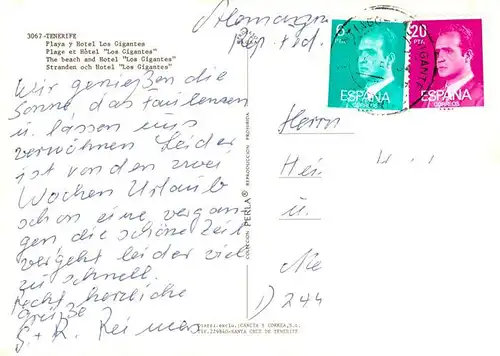 3067-TENERIFE
Playa y Hotel Los Gigantes
Plage et Hôtel "Los Gigantes"
The beach and Hotel "Los Gigantes"
Stranden och Hotel "Los Gigantes"
Wir genießen die
Sonne das Faulenzen
u. lassen uns
verwöhnen. Leider
ist von den zwei
Wochen Urlaub
schon eine vergan-
gen die schöne Zeit
vergeht leider viel
zu schnell.
recht herzliche
Grüße
S. + R. Reimers
COLECCION PERLA® REPRODUCCION PROHIBIDA
PTA
20
PTA
ESPAÑA
CORREOS
ESPAÑA
CORREOS
Herrn
Hei
u.
Me
D 244
GARCIA Y CORREA, S.L.
SANTA CRUZ DE TENERIFE